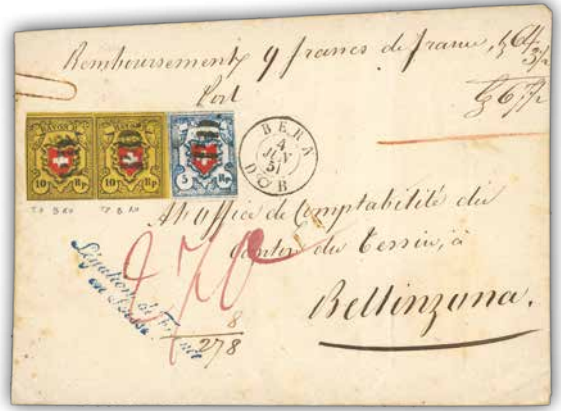 Remboursement 9 francs de france, 
Port
RAYON II
RAYON II
RAYON I
10 Rp.
10 Rp.
5 Rp.
BERN
4
JUN
51
D'OB
office de Comptabilité du
Canton du Tessin, à
Bellinzona.
Légation de France
en Suisse.
270
8
278